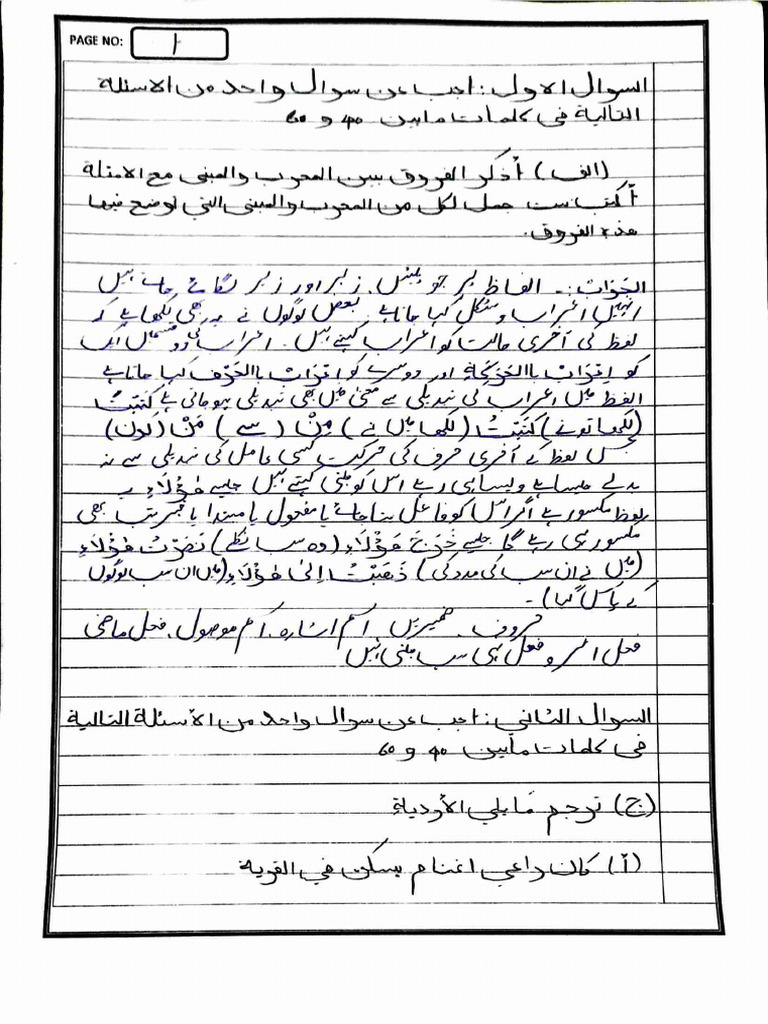 PAGE NO: 1
السوال الاول : اجب عن سوال واحد من الاسئلة
التالية في كلمات مابين ۴۰ و ۶۰
(الف) أذكر الفروق بين المعرب والمبنى مع الامثلة
أكتب ست جمل لكل من المعرب والمبنى التي توضح فيها
هذه الفروق.
الجَوَابْ :- الفاظ پر جو پیش، زبر اور زیر لگائے جاتے ہیں
انہیں اعراب و شکل کہا جاتا ہے بعض لوگوں نے یہ بھی لکھا ہے کہ
لفظ کی آخری حالت کو اعراب کہتے ہیں۔ اعراب کی دو قسمیں ایک
کو اِعْرَابْ بِاالحَرْكَةِ اور دوسرے کو اعْرَابْ بِاالحَرْف کہا جاتا ہے
الفظ میں اعراب کی تبدیلی سے معنیٰ میں بھی تبدیلی ہو جاتی ہے كَتَبْتَ
(لکھا تو نے) كَتَبْتُ (لکھا میں نے) مِنْ (سے) مَنْ (کون)
جس لفظ کے آخری حرف کی حرکت کسی عامل کی تبدیلی سے نہ
بدلے جیسا ہے ویسا ہی رہے اس کو مبنی کہتے ہیں جیسے هٰؤُلَاءِ یہ
لفظ مکسور ہے اگر اس کو فاعل بنا جائے یا مفعول یا مبتدا یا خبر تب بھی
مکسور ہی رہے گا جیسے خَرَجَ هَؤُلَاءِ (وہ سب نکلے) نَصَرْتُ هٰؤُلَاءِ
(میں نے ان سب کی مدد کی) ذَهَبْتُ اِلىٰ هٰؤُلَاءِ (میں ان سب لوگوں
کے پاس گیا)۔
حروف، ضمیریں، اسم اشارہ، اسم موصول، فعل ماضی
فعل امر و فعل نہی سب مبنی ہیں
السوال الثاني : اجب عن سوال واحد من الأسئلة التالية
في كلمات مابين ۴۰ و ۶۰
(ج) ترجم مَايلي الأودية
(أ) كان راعي اغنام يسكن في القرية